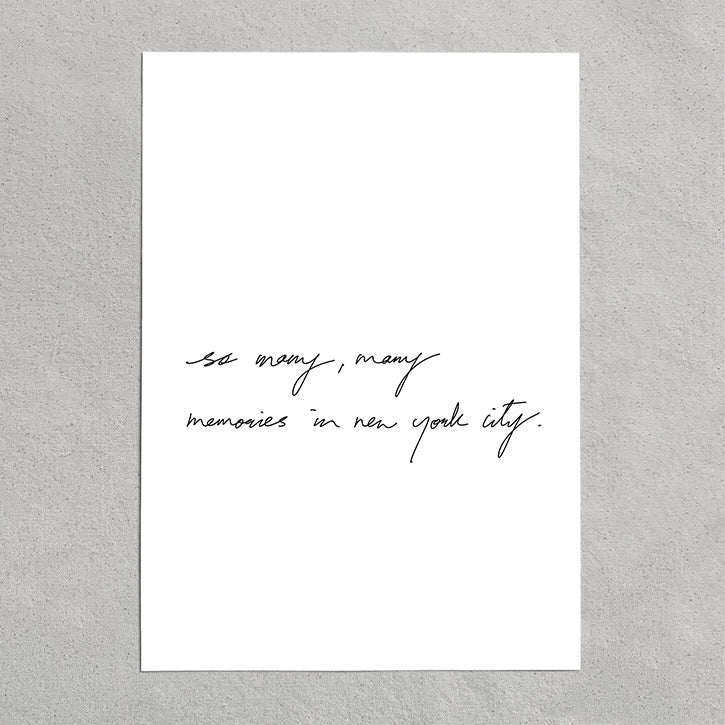 so many, many
memories in new york city.